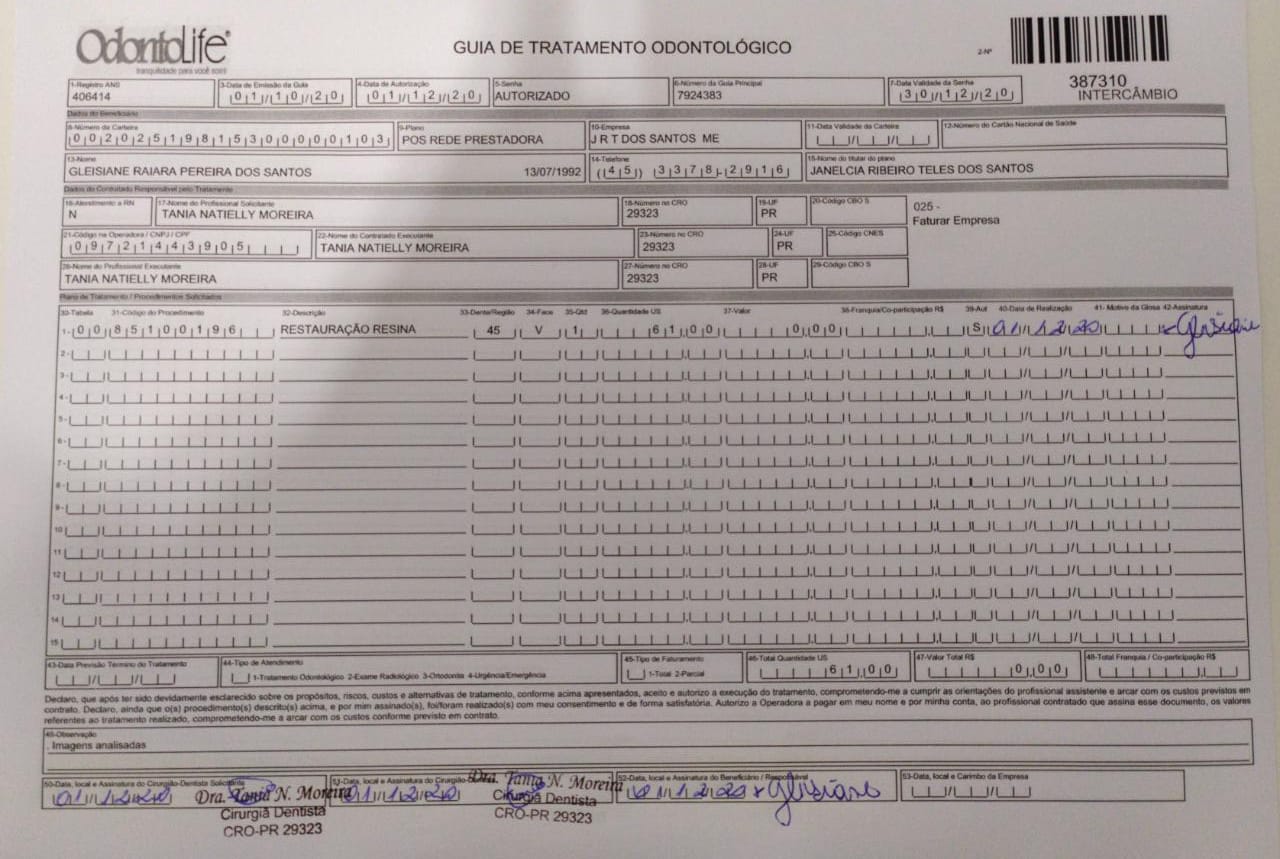 OdontoLife®
tranquilidade para você sorrir
GUIA DE TRATAMENTO ODONTOLÓGICO
2-Nº
387310
INTERCÂMBIO
1-Registro ANS 3-Data de Emissão da Guia 4-Data de Autorização 5-Senha 6-Número da Guia Principal 7-Data Validade da Senha
406414 01/10/20 01/12/20 AUTORIZADO 7924383 30/12/20
Dados do Beneficiário
8-Número da Carteira 9-Plano 10-Empresa 11-Data Validade da Carteira 12-Número do Cartão Nacional de Saúde
00202519815300000103 POS REDE PRESTADORA J R T DOS SANTOS ME
13-Nome 14-Telefone 15-Nome do titular do plano
GLEISIANE RAIARA PEREIRA DOS SANTOS 13/07/1992 (45) 3378-2916 JANELCIA RIBEIRO TELES DOS SANTOS
Dados do Contratado Responsável pelo Tratamento
16-Atendimento a RN 17-Nome do Profissional Solicitante 18-Número no CRO 19-UF 20-Código CBO S
N TANIA NATIELLY MOREIRA 29323 PR
025 -
Faturar Empresa
21-Código na Operadora / CNPJ / CPF 22-Nome do Contratado Executante 23-Número no CRO 24-UF 25-Código CNES
09721443905 TANIA NATIELLY MOREIRA 29323 PR
26-Nome do Profissional Executante 27-Número no CRO 28-UF 29-Código CBO S
TANIA NATIELLY MOREIRA 29323 PR
Plano de Tratamento / Procedimentos Solicitados
30-Tabela 31-Código do Procedimento 32-Descrição 33-Dente/Região 34-Face 35-Qtd 36-Quantidade US 37-Valor 38-Franquia/Co-participação R$ 39-Aut 40-Data de Realização 41- Motivo da Glosa 42-Assinatura
1- 00 85100196 RESTAURAÇÃO RESINA 45 V 1 61,00 0,00 S 01/12/20 Gleisiane
2-
3-
4-
5-
6-
7-
8-
9-
10
11
12
13
14
15
43-Data Previsão Término do Tratamento 44-Tipo de Atendimento 45-Tipo de Faturamento 46-Total Quantidade US 47-Valor Total R$ 48-Total Franquia / Co-participação R$
1-Tratamento Odontológico 2-Exame Radiológico 3-Ortodontia 4-Urgência/Emergência 1-Total 2-Parcial 61,00 0,00
Declaro, que após ter sido devidamente esclarecido sobre os propósitos, riscos, custos e alternativas de tratamento, conforme acima apresentados, aceito e autorizo a execução do tratamento, comprometendo-me a cumprir as orientações do profissional assistente e arcar com os custos previstos em
contrato. Declaro, ainda que o(s) procedimento(s) descrito(s) acima, e por mim assinado(s), foi/foram realizado(s) com meu consentimento e de forma satisfatória. Autorizo a Operadora a pagar em meu nome e por minha conta, ao profissional contratado que assina esse documento, os valores
referentes ao tratamento realizado, comprometendo-me a arcar com os custos conforme previsto em contrato.
49-Observação
. Imagens analisadas
50-Data, local e Assinatura do Cirurgião-Dentista Solicitante 51-Data, local e Assinatura do Cirurgião- 52-Data, local e Assinatura do Beneficiário / Responsável 53-Data, local e Carimbo da Empresa
01/12/20 Dra. Tania N. Moreira 01/12/20 Dra. Tania N. Moreira 01/12/20 Gleisiane
Cirurgiã Dentista Cirurgiã Dentista
CRO-PR 29323 CRO-PR 29323